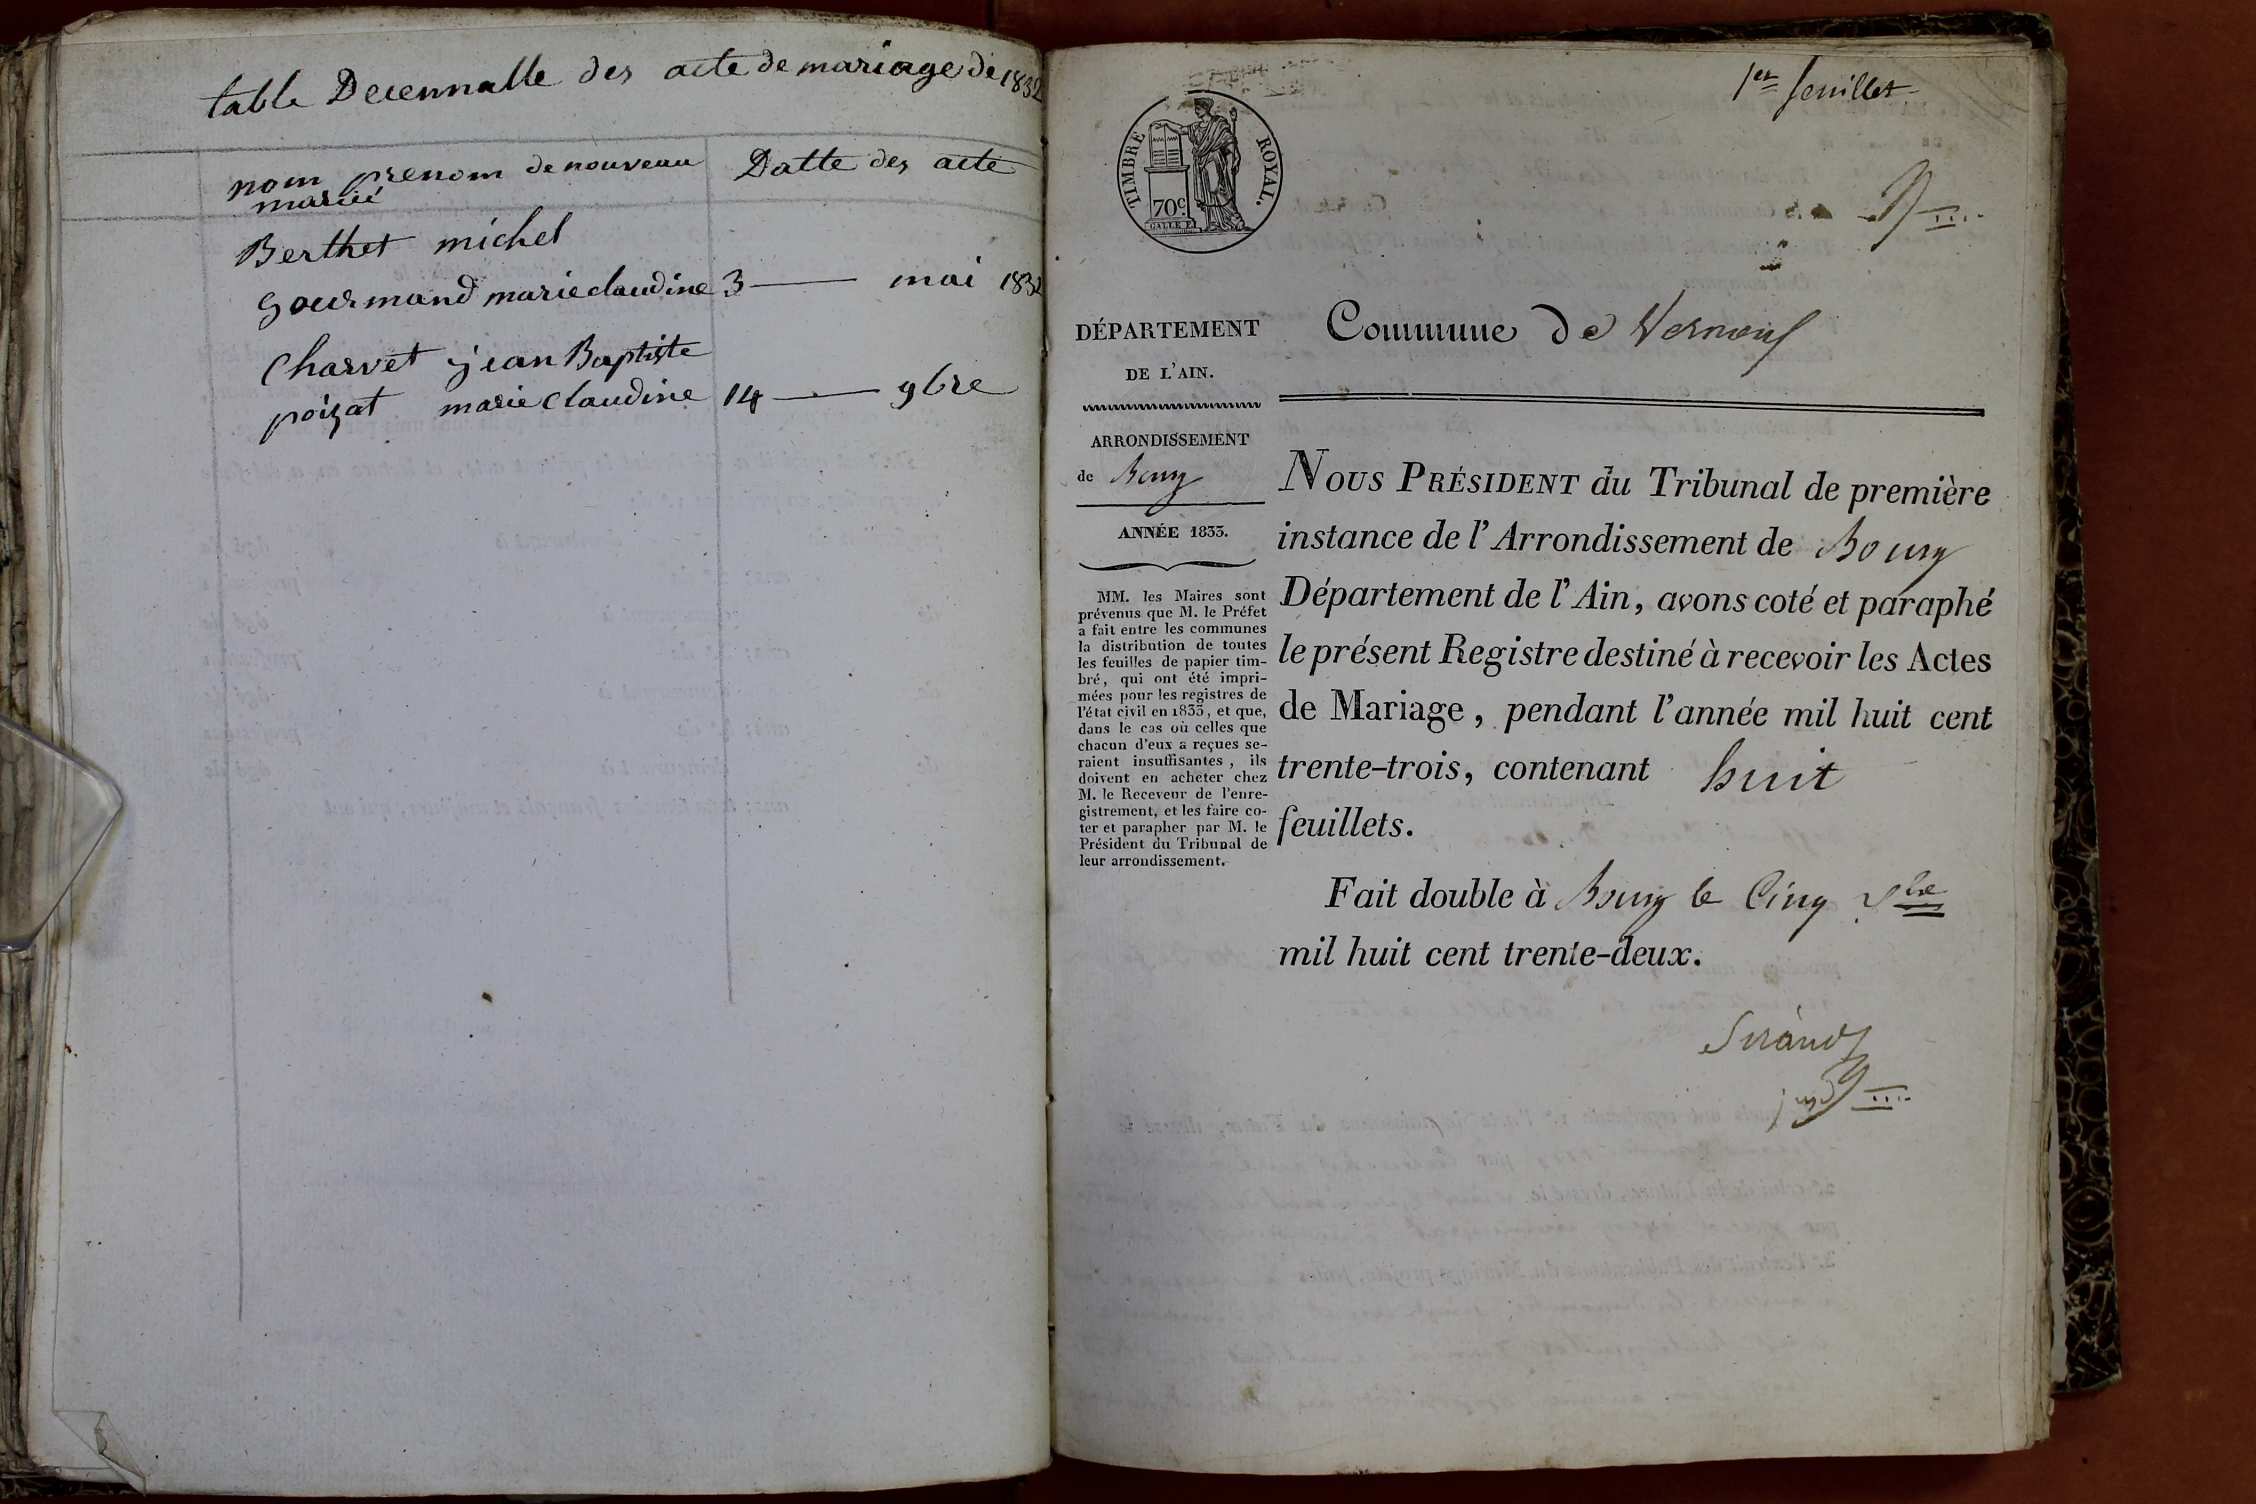 table Decennalle des acte de mariage de 1832
nom prenom de nouveau
marié
Datte des acte
Berthet michel
gourmand marie claudine 3 — mai 1832
Charvet jean Baptiste
poizat marie Claudine 14 — 9bre
1er feuillet
TIMBRE ROYAL.
70c.
GALLE F.
DÉPARTEMENT
DE L'AIN.
ARRONDISSEMENT
de Bourg
ANNÉE 1833.
MM. les Maires sont
prévenus que M. le Préfet
a fait entre les communes
la distribution de toutes
les feuilles de papier tim-
bré, qui ont été impri-
mées pour les registres de
l'état civil en 1833, et que,
dans le cas où celles que
chacun d'eux a reçues se-
raient insuffisantes, ils
doivent en acheter chez
M. le Receveur de l'enre-
gistrement, et les faire co-
ter et parapher par M. le
Président du Tribunal de
leur arrondissement.
Commune de Vernoux
NOUS PRÉSIDENT du Tribunal de première
instance de l'Arrondissement de Bourg
Département de l'Ain, avons coté et paraphé
le présent Registre destiné à recevoir les Actes
de Mariage, pendant l'année mil huit cent
trente-trois, contenant huit
feuillets.
Fait double à Bourg le Cinq
mil huit cent trente-deux.